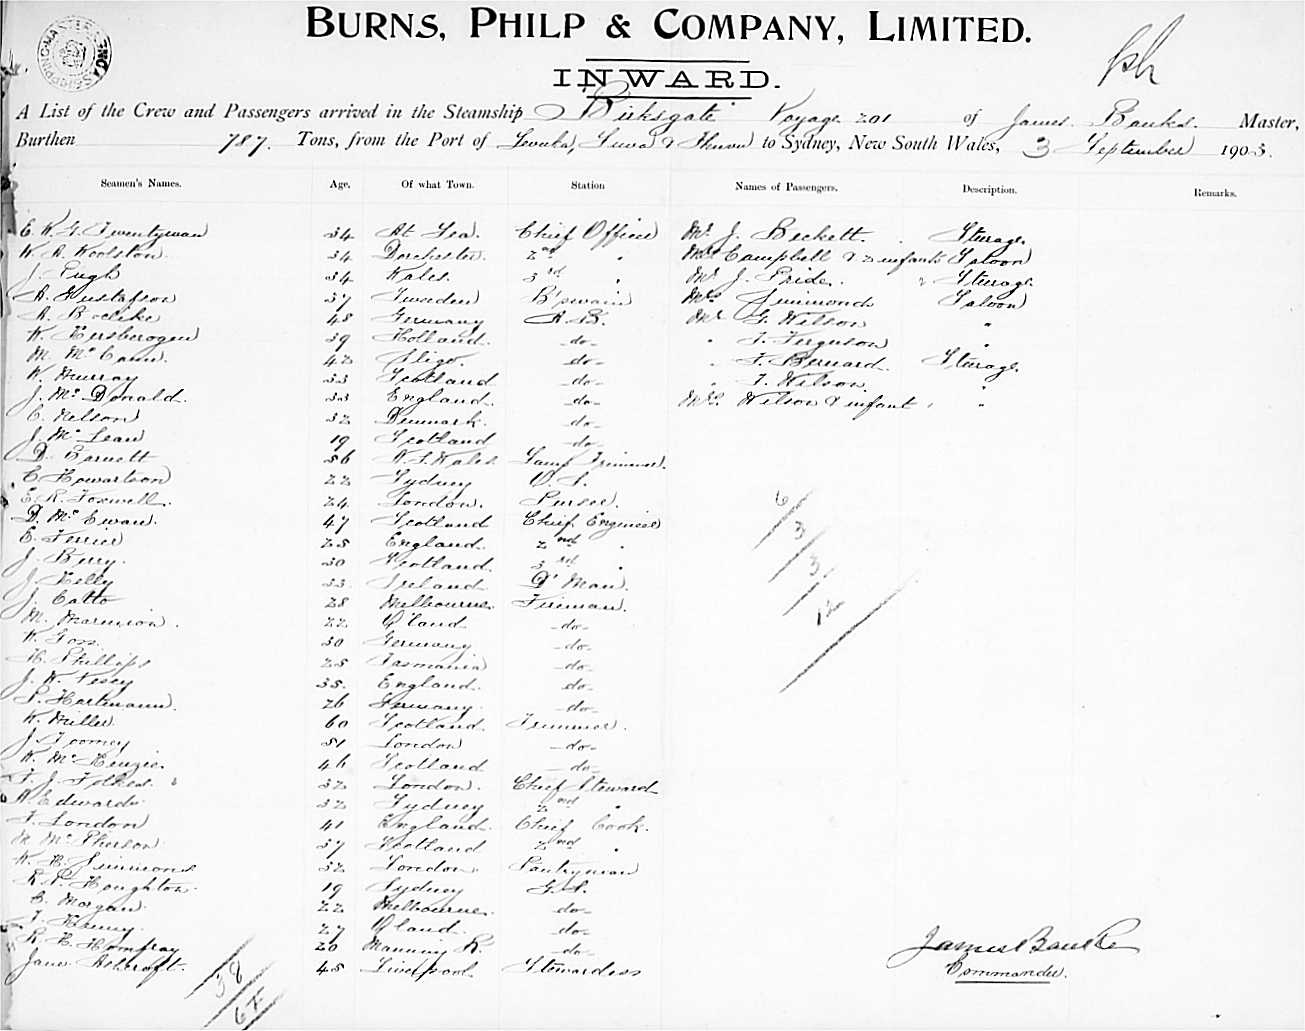 BURNS, PHILP & COMPANY, LIMITED.
INWARD.
A List of the Crew and Passengers arrived in the Steamship Birksgate Voyage 201 of James Banks. Master,
Burthen 787. Tons, from the Port of Levuka, Suva & to Sydney, New South Wales, 3 September 1903.
Seamen's Names. Age. Of what Town. Station Names of Passengers. Description. Remarks.
E. K. G. Twentyman 34 At Sea. Chief Officer Mr. J. Beckett. Sturage
W. A. Woolston. 34 Dorchester. 2nd " Mrs Campbell & 2 infants Saloon
J. Pugh 34 Wales. 3rd " Mr J. Pride. Sturage
A. Gustafson 37 Sweden B'swain Mrs Simmonds Saloon
A. 48 Germany A. B. Mr G. Wilson "
W. 39 Holland. -do- " F. Ferguson "
M. McCann. 42 Sligo. -do- " F. Bernard. Sturage
W. Murray 33 Scotland -do- " F. Wilson "
J. McDonald. 33 England. -do- Mrs. Wilson & infant "
C. Nelson 32 Denmark. -do-
J. McLean 19 Scotland -do-
D. Barnett 56 N. S. Wales Lamp Trimmer.
C. Howartson 22 Sydney O. S.
E. R. Foxwell. 24 London. Purser.
D. McEwan. 47 Scotland Chief Engineer
E. Ferrier 25 England. 2nd "
J. Berry. 30 Scotland. 3rd "
J. Kelly 33 Ireland D' Man.
J. Catto 28 Melbourne Fireman.
M. Marmion. 22 Q'land -do-
W. Goss. 30 Germany -do-
H. Phillips 25 Tasmania -do-
J. W. Vesey 35. England. -do-
P. Hartmann. 26 Germany. -do-
W. Miller 60 Scotland Trimmer.
J. Toomey 51 London -do-
W. McKenzie. 46 Scotland -do-
F. J. 32 London. Chief Steward
A. Edwards 32 Sydney 2nd "
F. London 41 England. Chief Cook.
M. McPherson 37 Scotland 2nd "
W. H. Simmons 32 London Pantryman
R. P. Houghton 19 Sydney G. S.
C. Morgan 22 Melbourne. -do-
F. Kenny. 27 Q'land. -do-
R. H. Homfray 20 Manning R. -do-
Jane Ashcroft. 45 Liverpool. Stewardess
6
3
3
12
38
James Banks
Commander.